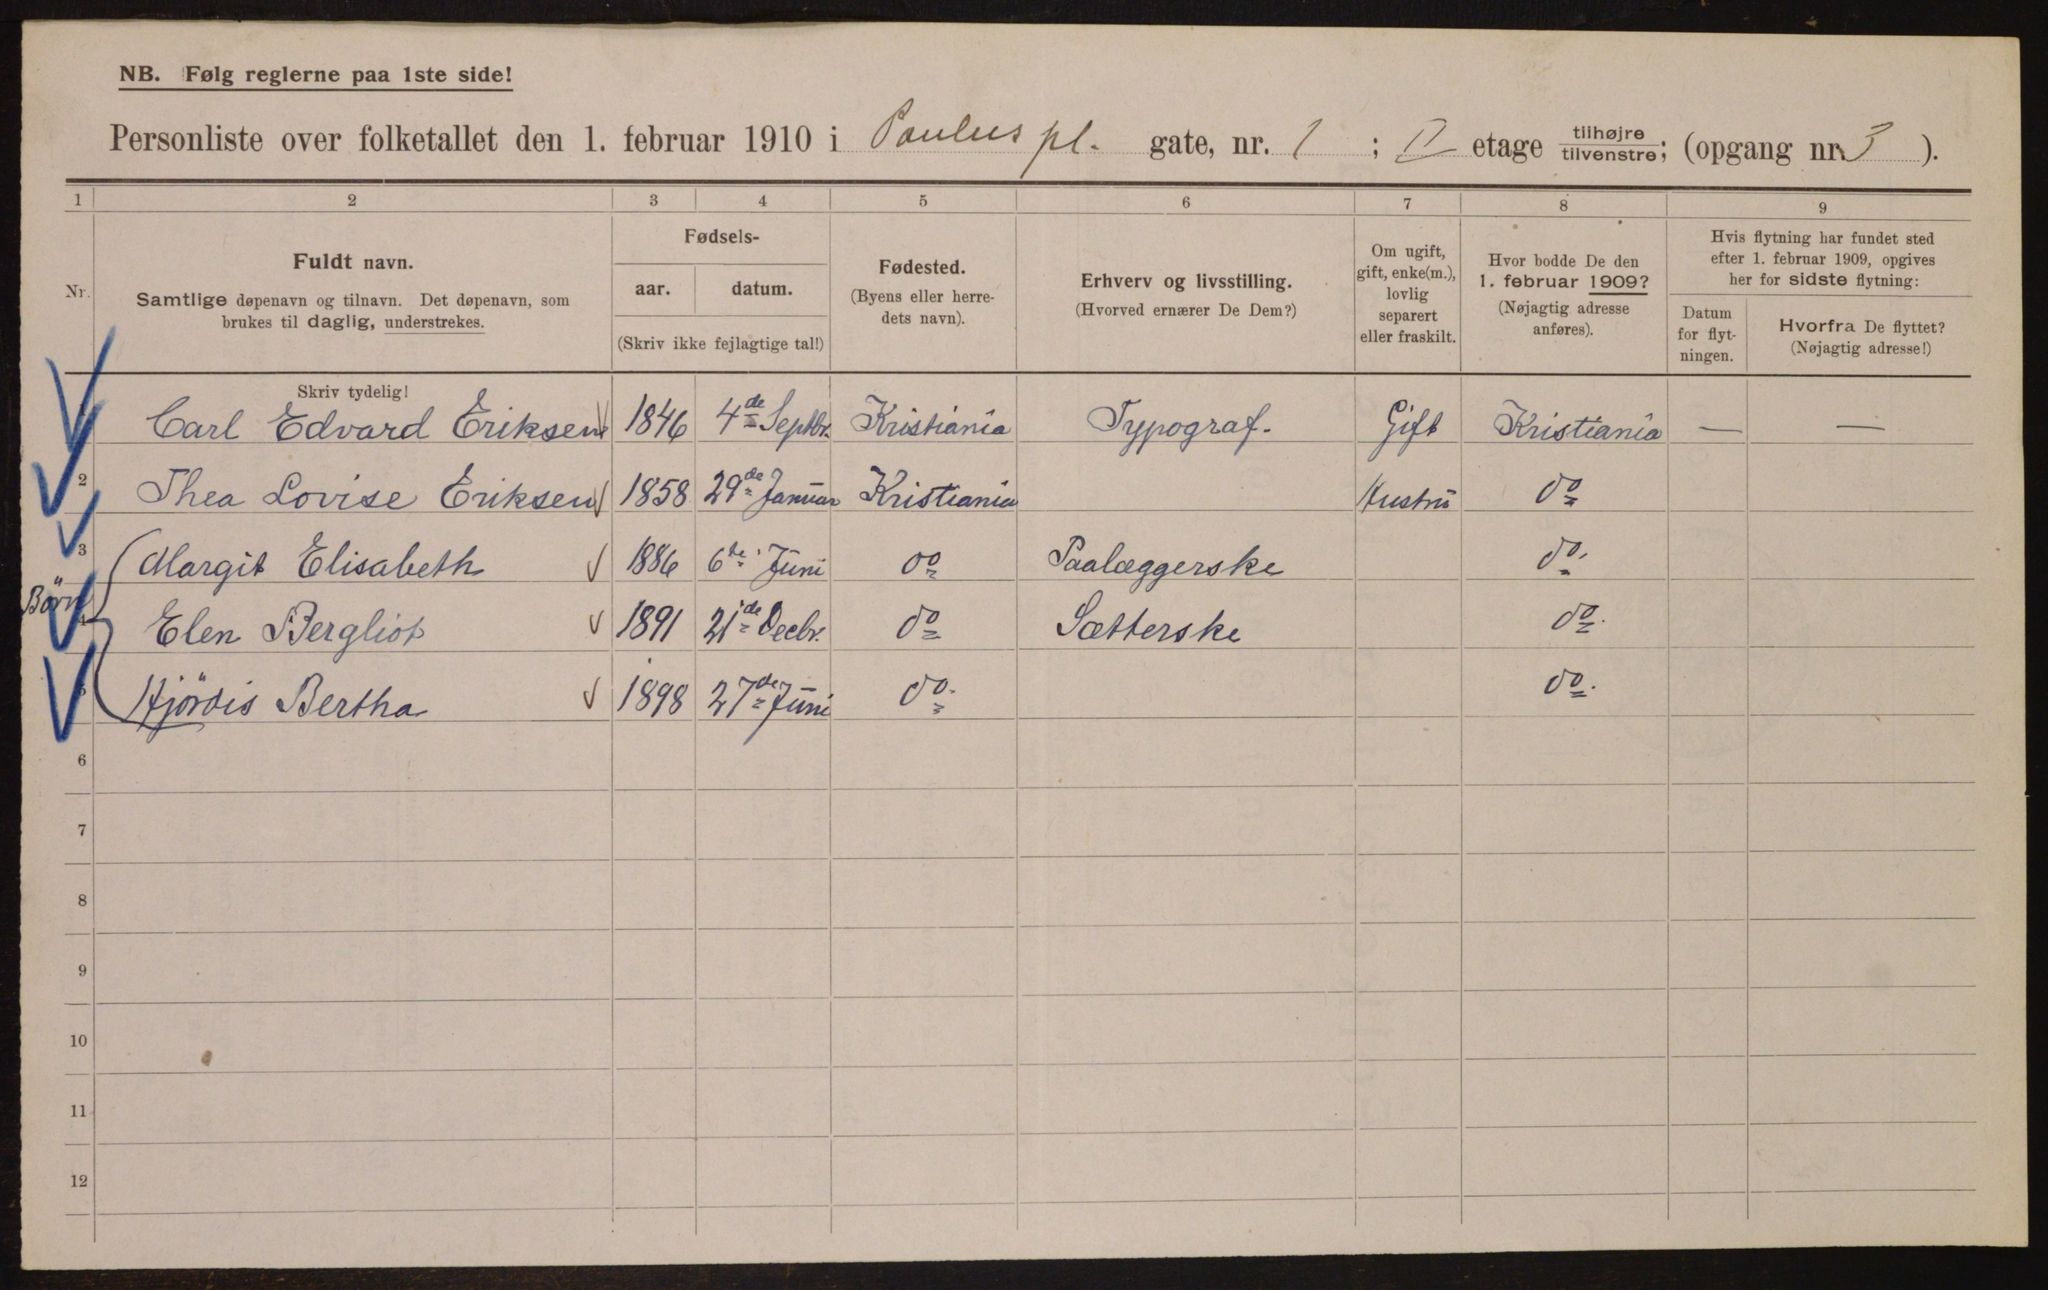 NB. Følg reglerne paa 1ste side!
Personliste over folketallet den 1. februar 1910 i Paulus pl. gate, nr. 1 ; II etage tilhøjre/tilvenstre; (opgang nr. 3 ).
1 2 3 4 5 6 7 8 9
Nr.
Fuldt navn.
Samtlige døpenavn og tilnavn. Det døpenavn, som
brukes til daglig, understrekes.
Fødsels-
aar. datum.
(Skriv ikke fejlagtige tal!)
Fødested.
(Byens eller herre-
dets navn).
Erhverv og livsstilling.
(Hvorved ernærer De Dem?)
Om ugift,
gift, enke(m.),
lovlig
separert
eller fraskilt.
Hvor bodde De den
1. februar 1909?
(Nøjagtig adresse
anføres).
Hvis flytning har fundet sted
efter 1. februar 1909, opgives
her for sidste flytning:
Datum
for flyt-
ningen.
Hvorfra De flyttet?
(Nøjagtig adresse!)
Skriv tydelig!
Carl Edvard Eriksen 1846 4de Septbr. Kristiania Typograf. Gift Kristiania — —
2 Thea Lovise Eriksen 1858 29de Januar Kristiania Hustru do
3 Margit Elisabeth 1886 6te Juni do Paalæggerske do.
Börn 4 Elen Bergliot 1891 21de Decbr. do Sætterske do.
5 Hjördis Bertha 1898 27de Juni do. do.
6
7
8
9
10
11
12